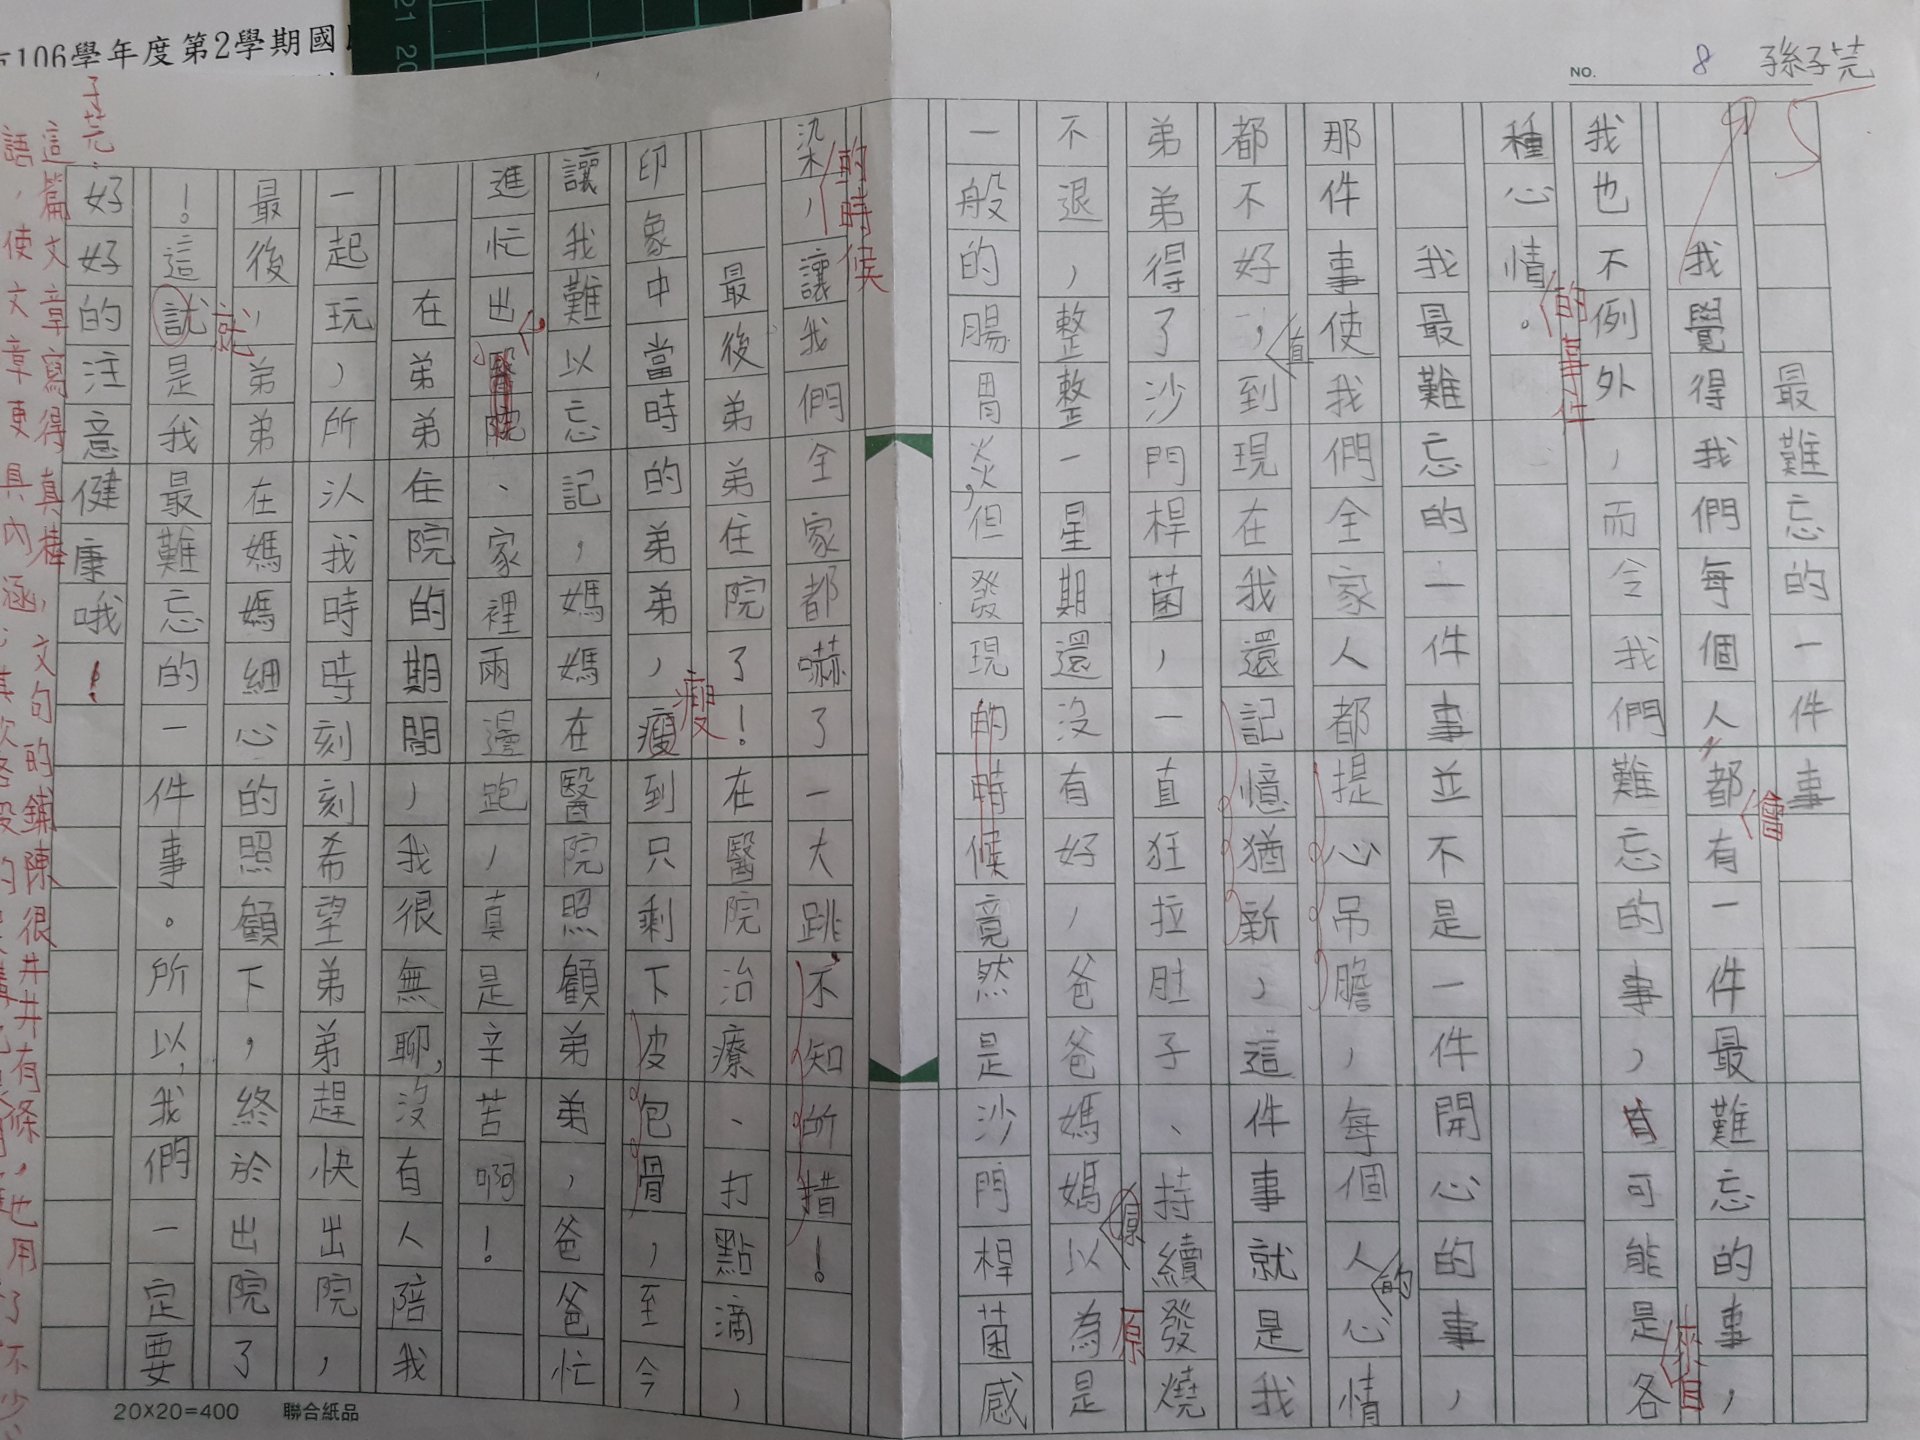 106學年度第2學期國
21 20
NO. 8 孫子芫
最難忘的一件事
我覺得我們每個人都有一件最難忘的事，
會
我也不例外，而令我們難忘的事，有可能是各
來自
種心情。
的事件
我最難忘的一件事並不是一件開心的事，
那件事使我們全家人都提心吊膽，每個人心情
的
都不好，到現在我還記憶猶新，這件事就是我
直
弟弟得了沙門桿菌，一直狂拉肚子、持續發燒
不退，整整一星期還沒有好，爸爸媽媽以為是
原
一般的腸胃炎，但發現的時候竟然是沙門桿菌感
染，讓我們全家都嚇了一大跳不知所措！
的時候
最後弟弟住院了！在醫院治療、打點滴，
印象中當時的弟弟，瘦到只剩下皮包骨，至今
瘦
讓我難以忘記，媽媽在醫院照顧弟弟，爸爸忙
進忙出醫院、家裡兩邊跑，真是辛苦啊！
在弟弟住院的期間，我很無聊，沒有人陪我
一起玩，所以我時時刻刻希望弟弟趕快出院，
最後，弟弟在媽媽細心的照顧下，終於出院了
就
！這就是我最難忘的一件事。所以，我們一定要
好好的注意健康哦！
子芫：
這篇文章寫得真棒，文句的鋪陳很井井有條，也用了不少
語，使文章更具內涵
20X20=400 聯合紙品